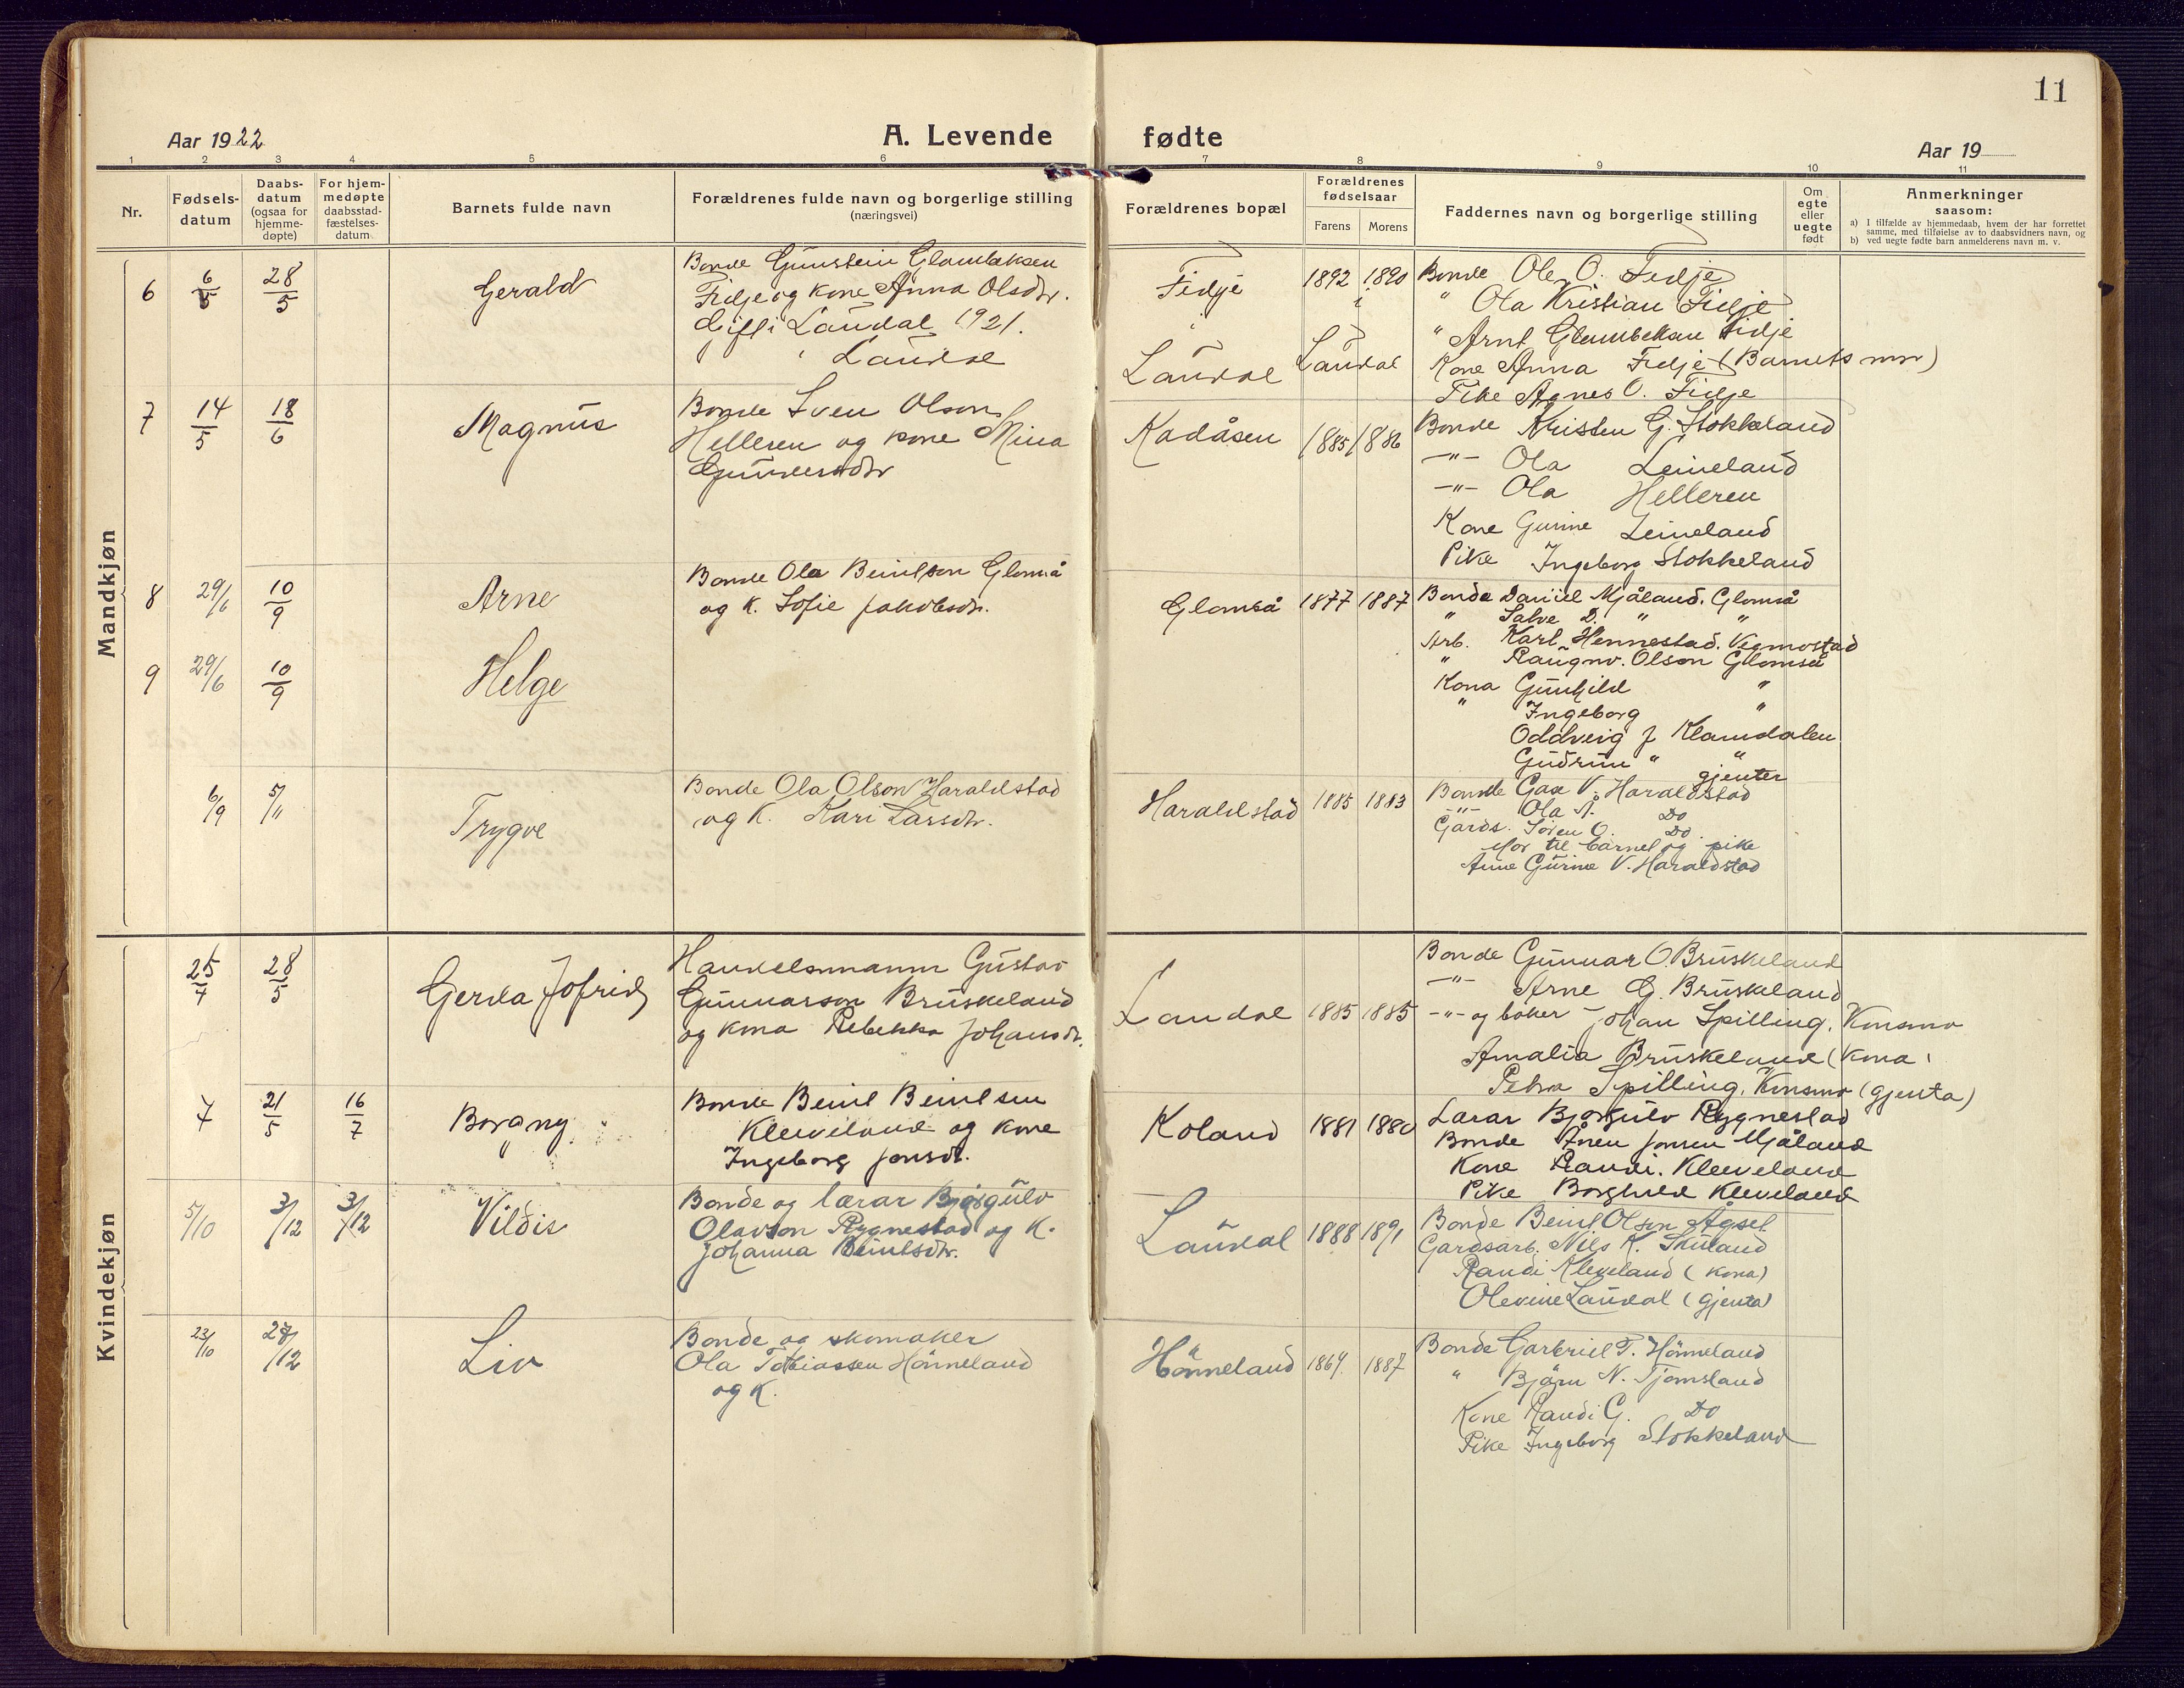 11
Aar 1922
A. Levende fødte
Aar 19
1 2 3 4 5 6 7 8 9 10 11
Nr.
Fødsels-
datum
Daabs-
datum
(ogsaa for
hjemme-
døpte)
For hjem-
medøpte
daabsstad-
fæstelses-
datum
Barnets fulde navn
Forældrenes fulde navn og borgerlige stilling
(næringsvei)
Forældrenes bopæl
Forældrenes
fødselsaar
Farens Morens
Faddernes navn og borgerlige stilling
Om
egte
eller
uegte
født
Anmerkninger
saasom:
a) I tilfælde av hjemmedaab, hvem der har forrettet
samme, med tilføielse av to daabsvidners navn, og
b) ved uegte fødte barn anmelderens navn m. v.
Mandkjøn
6
6/5
28/5
Gerald
Bonde Gunstein Glambæksen
Fidje og kone Anna Olsdtr.
Gift i Laudal 1921.
Laudal
Fidje
i
Laudal
1892 1890
i
Laudal
Bonde Ole O. Fidje
" Ola Kristian Fidje
" Arnt Glambeksen Fidje
Kone Anna Fidje (Barnets mor)
Pike Agnes O. Fidje
7
14/5
18/6
Magnus
Bonde Sven Olson
Helleren og kone Mina
Gundersdtr
Kadåsen
1885 1886
Bonde Kristen G. Stokkeland
-"- Ola Leineland
-"- Ola Helleren
Kone Gurine Leineland
Pike Ingeborg Stokkeland
8
29/6
10/9
Arne
Bonde Ola Beintson Glomså
og k. Sofie Jakobsdtr.
Glomså
1877 1887
Bonde Daniel Mjåland. Glomså
" Salve D. " "
Arb. Karl Hennestad. Vegmostad
" Raugnv. Olson Glomså
Kona Gunhild "
" Ingeborg "
Oddveig J Klamdalen
Gudrun " "
gjenter
9
29/6
10/9
Helge
6/9
5/11
Trygve
Bonde Ola Olson Haraldstad
og k. Kari Larsdtr.
Haraldstad
1885 1883
Bonde Gax V. Haraldstad
-"- Ola A. Do
Gårds. Søren O. Do.
Mor til barnet og pike
Anne Gurine V. Haraldstad
Kvindekjøn
25/4
28/5
Gerda Jofrid
Handelsmann Gustav
Gunnarson Bruskeland
og kona Rebekka Johansdtr.
Laudal
1885 1885
Bonde Gunnar O. Bruskeland
-"- Arne G. Bruskeland
-"- og baker Johan Spilling, Konsmo
Amalia Bruskeland (Kona)
Petra Spilling, Konsmo (gjenta)
7
21/5
16/7
Borgny
Bonde Beint Beintsen
Kleveland og kone
Ingeborg Jonsdtr.
Koland
1881 1880
Lærar Bjørgulv Rygnestad
Bonde Ånen Jonsen Mjåland
Kone Randi Kleveland
Pike Borghild Kleveland
5/10
3/12
3/12
Vildis
Bonde og lærar Bjørgulv
Olavson Rygnestad og k.
Johanna Beintsdtr.
Laudal
1888 1891
Bonde Beint Olson Ågset
Gardsarb. Nils K. Skuland
Randi Kleveland (kona)
Olevine Laudal (gjenta)
23/10
27/12
Liv
Bonde og skomaker
Ola Tobiassen Hönneland
og k.
Hönneland
1864 1887
Bonde Gabriel T. Hönneland
" Bjørn N. Tjomsland
Kone Randi G. Do
Pike Ingeborg Stokkeland